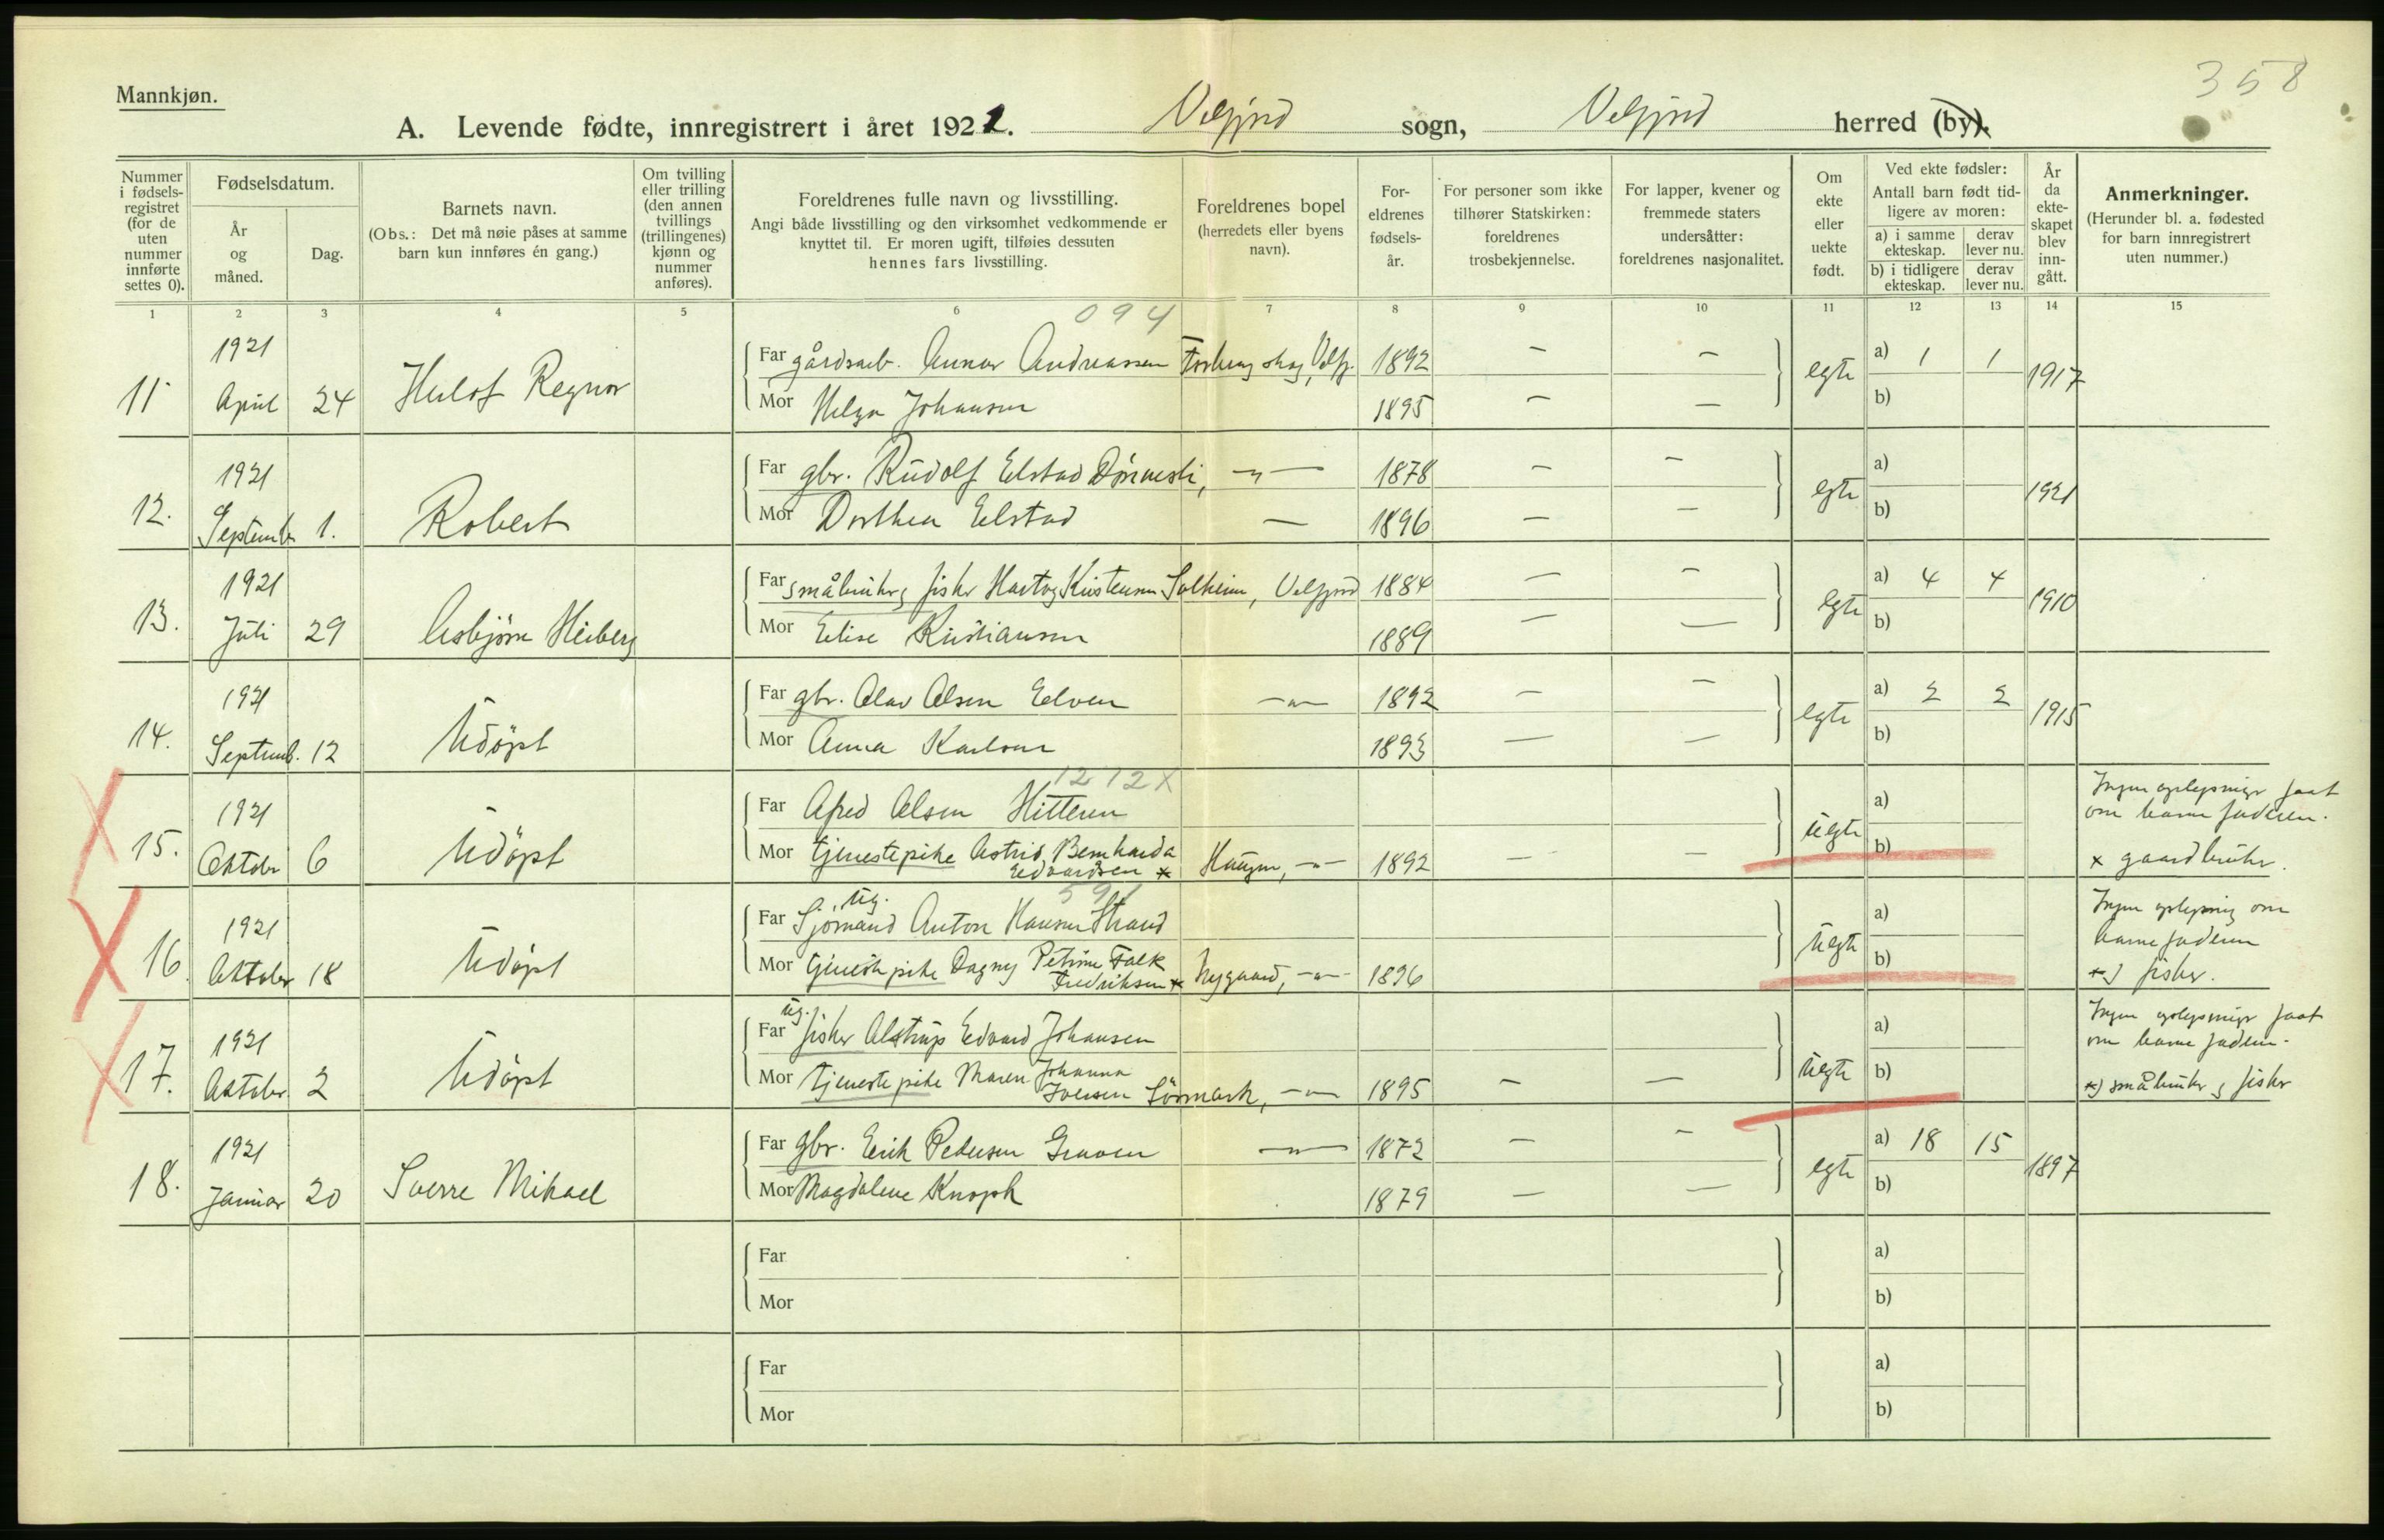 358
Mannkjøn.
A. Levende fødte, innregistrert i året 1921. Velfjord sogn, Velfjord herred (by).
Nummer i fødselsregistret (for de uten nummer innførte settes 0).
Fødselsdatum.
År og måned.
Dag.
Barnets navn.
(Obs.: Det må nøie påses at samme barn kun innføres én gang.)
Om tvilling eller trilling (den annen tvillings (trillingenes) kjønn og nummer anføres).
Foreldrenes fulle navn og livsstilling.
Angi både livsstilling og den virksomhet vedkommende er knyttet til. Er moren ugift, tilføies dessuten hennes fars livsstilling.
Foreldrenes bopel (herredets eller byens navn).
Foreldrenes fødselsår.
For personer som ikke tilhører Statskirken: foreldrenes trosbekjennelse.
For lapper, kvener og fremmede staters undersåtter: foreldrenes nasjonalitet.
Om ekte eller uekte født.
Ved ekte fødsler: Antall barn født tidligere av moren:
a) i samme ekteskap. derav lever nu.
b) i tidligere ekteskap. derav lever nu.
År da ekteskapet blev inngått.
Anmerkninger.
(Herunder bl. a. fødested for barn innregistrert uten nummer.)
1 2 3 4 5 6 7 8 9 10 11 12 13 14 15
094
11 1921 April 24 Herlof Regnor
Far gårdsarb. Gunnar Andreassen 1892 – –
Mor Helga Johansen 1895 – –
egte a) 1 1 b) 1917
12. 1921 Septemb. 1. Robert
Far gbr. Rudolf Elstad –"– 1878 – –
Mor Dorthea Elstad – 1896 – –
egte a) b) 1921
13. 1921 Juli 29 Asbjørn Heiberg
Far småbruker, fisker Hartvig Kristensen Solheim, Velfjord 1884 – –
Mor Elise Kristiansen 1889 – –
egte a) 4 4 b) 1910
14. 1921 Septemb. 12 Udöpt
Far gbr. Olav Olsen Elven –"– 1892 – –
Mor Anna Karlsen 1893 – –
egte a) 2 2 b) 1915
1212X
15. 1921 Oktober 6 Udöpt
Far Alfred Olsen Hitteren
Mor tjenestepike Astrid Bernharda Edvardsen * Haugen, –"– 1892 – –
uegte a) b)
Ingen oplysninger faat om barnefaderen.
* gaardbruker.
591
16. 1921 Oktober 18 Udöpt
Far ug. Sjömand Anton Hansen Strand
Mor tjenestepike Dagny Petrine Falk Fredriksen * Nygaard, –"– 1896
uegte a) b)
Ingen oplysning om barnefaderen
*) fisker.
17. 1921 Oktober 2 Udöpt
Far ug. fisker Alstrup Edvard Johansen
Mor tjenestepike Maren Johanna Iversen Sörmark, –"– 1895 – –
uegte a) b)
Ingen oplysninger faat om barnefaderen.
*) småbruker, fisker
18. 1921 Januar 20 Sverre Mikael
Far gbr. Erik Pedersen –"– 1872 – –
Mor Magdalene Knoph 1879 – –
egte a) 18 15 b) 1897
Far a)
Mor b)
Far a)
Mor b)